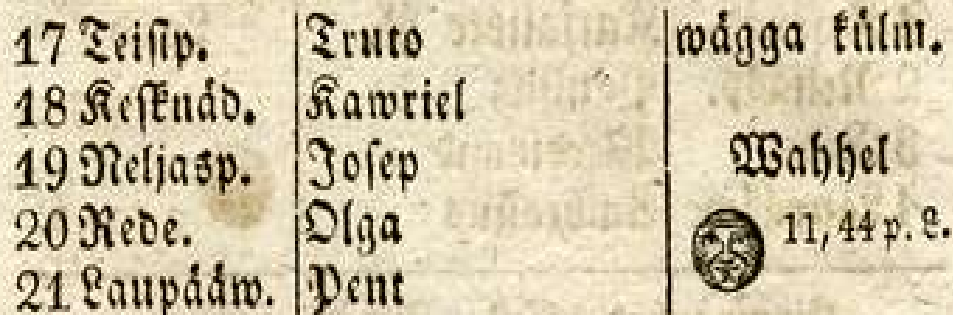 17 Teisip. Truto wägga külm.
18 Keſknäd. Kawriel
19 Neljasp. Joſep Wahhel
20 Rede. Olga 11,44 p. L.
21 Laupääw. Pent